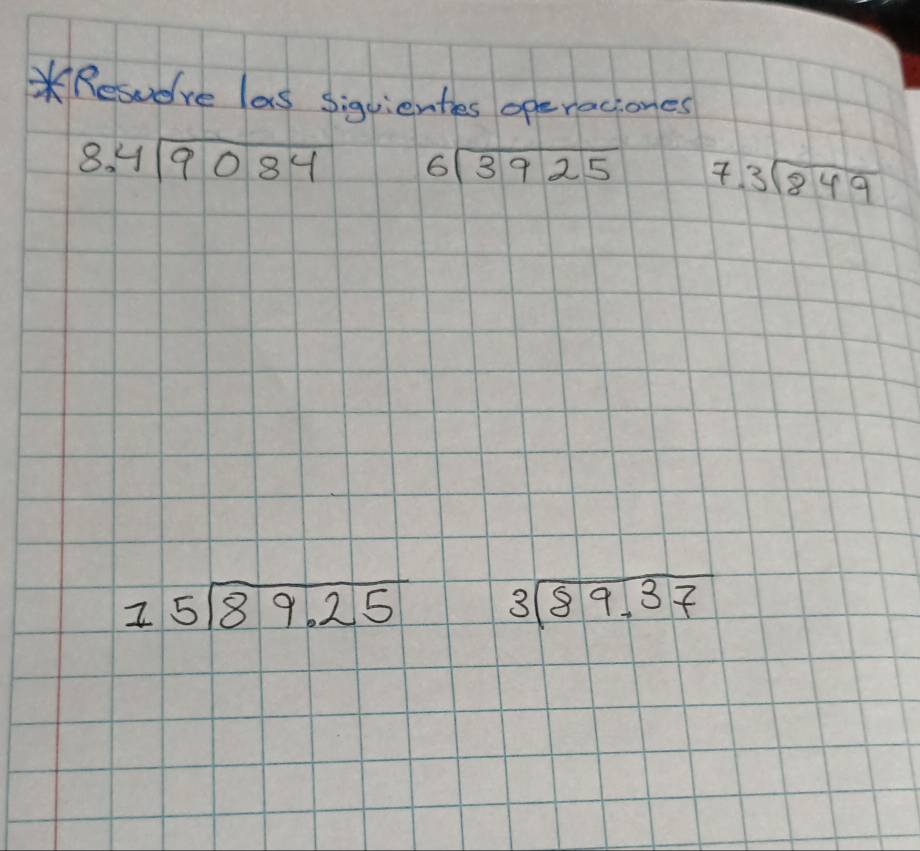 *Resuelve las siguientes operaciones
8.4 9084 6 3925 7.3 849
15 89.25 3 89.37